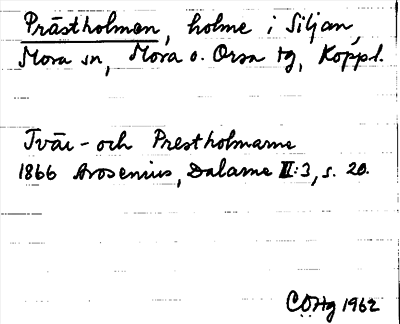 Prästholmen, holme i Siljan,
Mora sn, Mora o. Orsa tg, Koppl.
Tvär- och Prestholmarne
1866 Arosenius, Dalarne III:3, s. 20.
CÖHg 1962